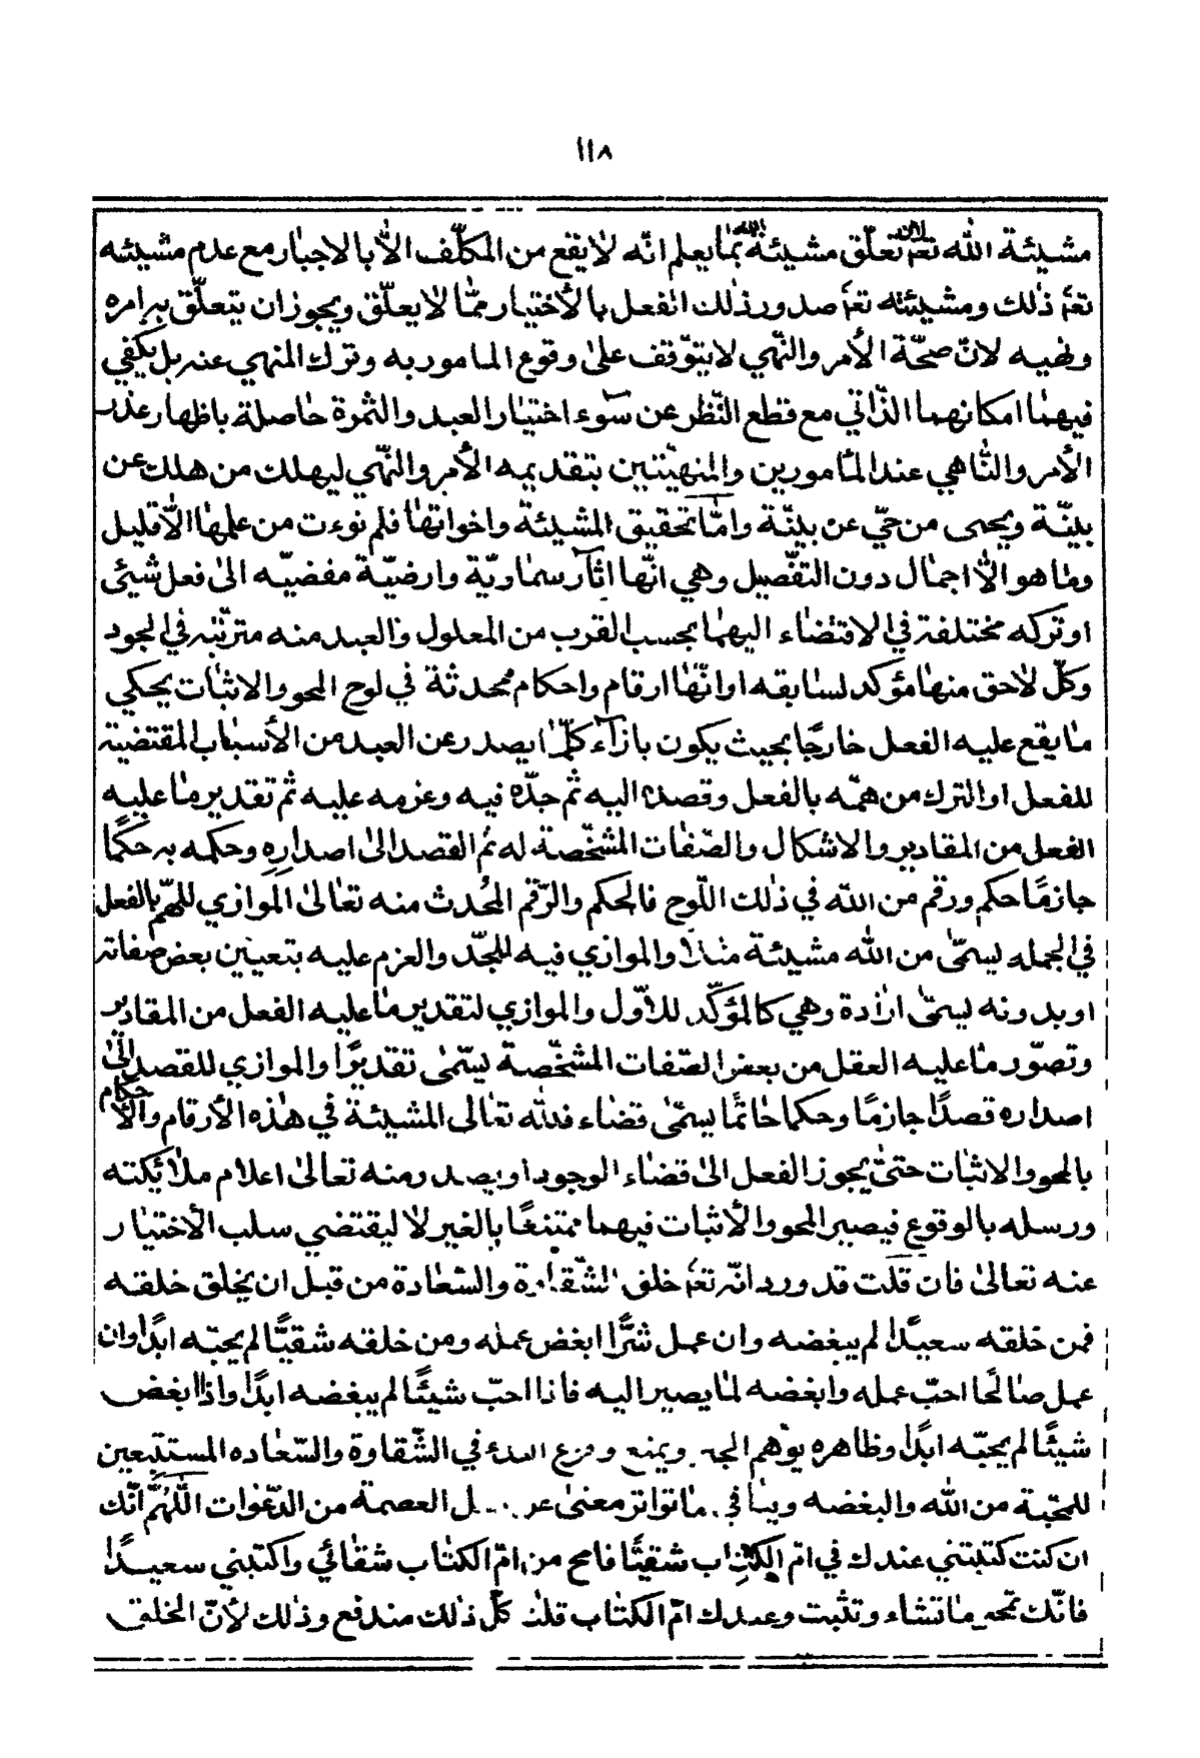 ١١٨
مشيئة الله تعالى لان تعلّق مشيئة الله بما يعلم انّه لا يقع من المكلّف الاّ بالاجبار مع عدم مشيئته
تعالى ذلك ومشيئته تعالى صدور ذلك الفعل بالأختيار ممّا لا يعلّق ويجوز ان يتعلّق به امره
ونهيه لانّ صحّة الأمر والنّهي لا يتوّقف على وقوع المامور به وترك المنهي عنه بل يكفي
فيهما امكانهما الذّاتي مع قطع النّظر عن سوء اختيار العبد والثمرة حاصلة باظهار عذر
الأمر والنّاهي عند المأمورين والمنهيّين بتقديمه الأمر والنّهي ليهلك من هلك عن
بيّنة ويحيى من حيّ عن بيّنة وامّا تحقيق المشيئة واخواتها فلم نوءت من علمها الاّ قليل
وما هو الاّ اجمال دون التفّصيل وهي انّها اثآر سماويّة وارضيّة مفضيّه الى فعل شيئ
او تركه مختلفة في الاقتضاء اليهما بحسب القرب من المعلول والعبد منه مترتّبه في الجود
وكلّ لاحق منها مؤكد لسابقه او انّها ارقام واحكام محدثة في لوح المحو والاثبات يحكي
ما يقع عليه الفعل خارجًا بحيث يكون بازآء كلّما يصدر عن العبد من الأسباب المقتضية
للفعل او الترك من همّه بالفعل وقصده اليه ثم جدّه فيه وعزمه عليه ثم تقدير ما عليه
الفعل من المقادير والاشكال والصّفات المشخّصة له ثم القصد الى اصداره وحكمه به حكمًا
جازمًا حكم ورقم من الله في ذلك اللّوح فالحكم والرّقم المحُدث منه تعالى الموازي للهمّ بالفعل
في الجمله يسمّى من الله مشيئة مثلا والموازي فيه للجّد والعزم عليه بتعيين بعض صفاته
او بدونه يسمّى ارادة وهي كالمؤكّد للأوّل والموازي لتقدير ما عليه الفعل من المقادير
وتصوّر ما عليه العقل من بعض الصّفات المشخّصة يسّمى تقديرًا والموازي للقصد الى
اصداره قصدًا جازمًا وحكما حاتمًا يسمّى قضاء فلله تعالى المشيئة في هذه الأرقام والأحكام
بالمحو والاثبات حتىّ يجوز الفعل الى قضاء الوجود او يصدر منه تعالى اعلام ملائكته
ورسله بالوقوع فيصير المحو والأثبات فيهما ممتنعًا بالغير لا ليقتضي سلب الأختيار
عنه تعالى فان قلت قد ورد انّه تعالى خلق الشّقاوة والسّعادة من قبل ان يخلق خلقه
فمن خلقه سعيدًا لم يبغضه وان عمل شرًّا ابغض عمله ومن خلقه شقيًّا لم يحبّه ابدًا وان
عمل صالحًا احبّ عمله وابغضه لما يصير اليه فاذا احبّ شيئًا لم يبغضه ابدًا واذا ابغض
شيئًا لم يحبّه ابدًا وظاهره يوّهم ويمنع في الشّقاوة والسّعاده المستتبعين
للمحبّة من الله والبغضه وينا في ما تواتر معنى العصمة من الدّعوات اللّهمّ انّك
ان كنت كتبتني عندك في امّ الكتاب شقيًّا فامح من امّ الكتاب شقائي واكتبني سعيدًا
فانّك تمحو ما تشاء وتثبت وعندك امّ الكتاب قلت كلّ ذلك مندفع وذلك لأنّ الخلق